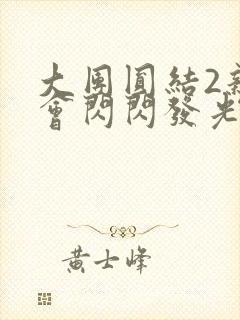 大團圓結2
會閃閃發光
黃士峰